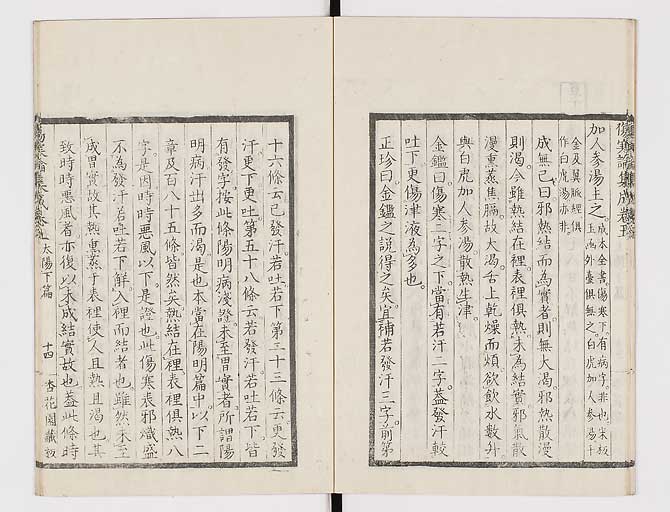 加人参湯主之。成本全書傷寒下。有病字。非也。宋板
玉函外臺俱無之。白虎加人参湯千
金及翼脈經俱
作白虎湯亦非。
成無己曰邪熱結而為實者。則無大渴。邪熱散漫
則渴。今雖熱結在裡。表裡俱熱。未為結實。邪氣散
漫熏蒸焦膈。故大渴。舌上乾燥而煩。欲飲水數升。
與白虎加人参湯。散熱生津。
金鑑曰。傷寒二字之下。當有若汗二字。蓋發汗較
吐下。更傷津液為多也。
正珍曰。金鑑之説得之矣。宜補若發汗三字。前第
十六條云。已發汗。若吐若下。第三十三條云。更發
汗更下更吐。第五十八條云。若發汗若吐若下。皆
有發字。按此條陽明病淺證。未至胃實者。所謂陽
明病汗出多而渴是也。本當在陽明篇中。以下二
章及百八十五條皆然矣。熱結在裡。表裡俱熱八
字。是因時時惡風以下是證也。此傷寒表邪熾盛
不為發汗若吐若下解。入裡而結者也。雖然未至
成胃實。故其熱熏蒸于表裡。使人且熱且渴也。其
致時時惡風者。亦復以未成結實故也。蓋此條時
傷寒論集成卷五
太陽下篇
十四
杏花園藏板
傷寒論集成卷五